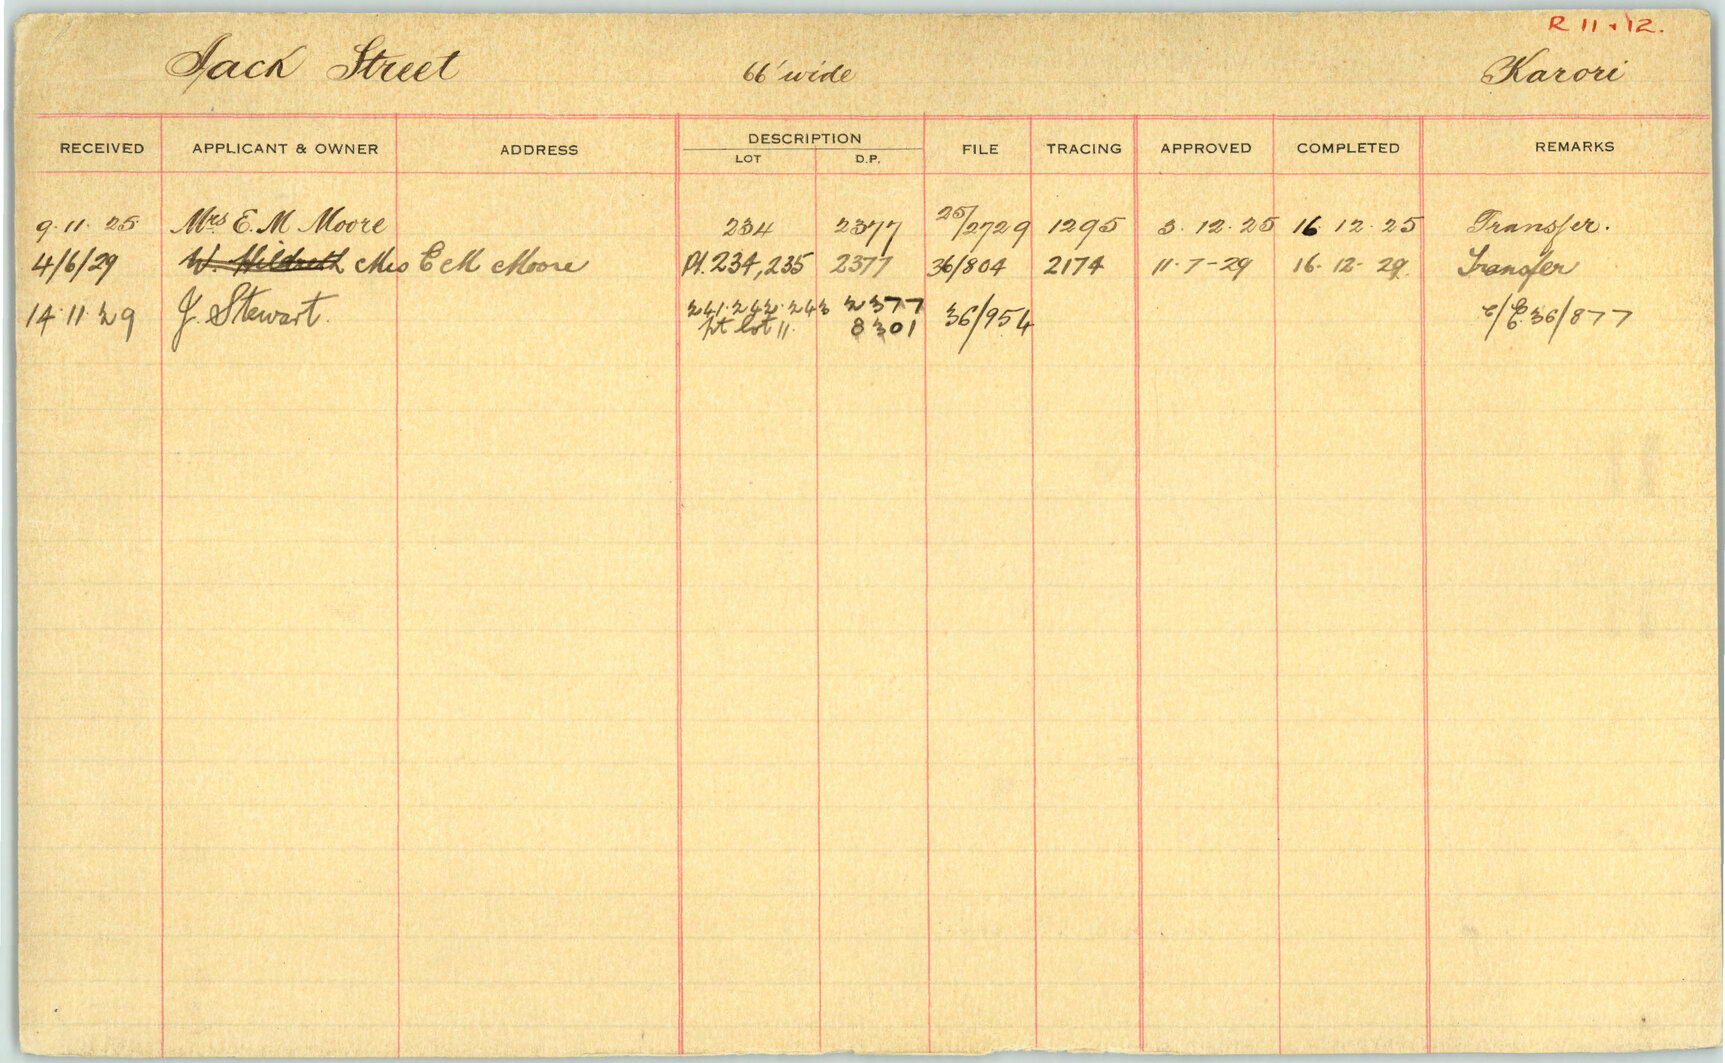 R 11 . 12.
Jack Street 66' wide Karori
RECEIVED APPLICANT & OWNER ADDRESS DESCRIPTION FILE TRACING APPROVED COMPLETED REMARKS
LOT D.P.
9. 11. 25 Mrs E. M Moore 234 2377 25/2729 1295 3. 12. 25 16. 12. 25 Transfer.
4/6/29 W. Hildreth Mrs E M Moore Pt. 234, 235 2377 36/804 2174 11-7-29 16-12-29 Transfer
14. 11. 29 J. Stewart. 241. 242. 243 2377 36/954 36/877
pt lot 11. 8301